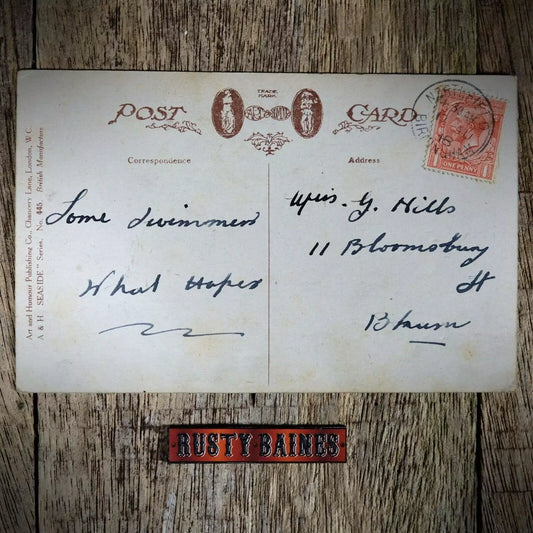 POST CARD
TRADE MARK.
Correspondence
Address
Art and Humour Publishing Co., Chancery Lane, London, W.C.
A & H "SEASIDE" Series. No. 445. British Manufacture
Some Swimmers
What Hopes
G. Hills
11 Bloomsbury
St
B'hum
ONE PENNY
RUSTY BAINES